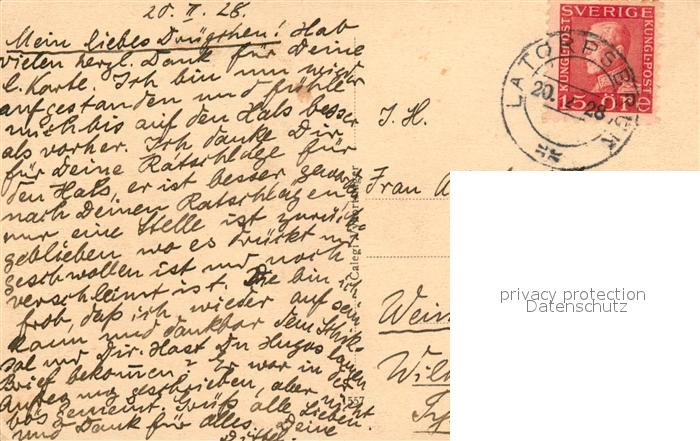 20. II. 28.
Mein liebes Drügchen! Hab
vielen herzl. Dank für Deine
l. Karte. Ich bin nun wieder
aufgestanden und fühle
mich bis auf den Hals besser
als vorher. Ich danke Dir
für Deine Ratschläge für
den Hals, er ist besser geworden
nach Deinen Ratschlägen,
nur eine Stelle ist zurück
geblieben wo es drückt und
geschwollen ist und noch
verschleimt ist. Die bin ich
froh, daß ich wieder auf sein
kann und dankbar dem Schick
sal und Dir. Hast Du Hugos langen
Brief bekommen? Er war in der
Aufregung geschrieben, aber nicht
bös gemeint. Grüß alle Lieben
und Dank für alles. Deine
SVERIGE
KUNGL-POST
KUNGL-POST
15 ÖRE
LATORPSBRUK
20. 28
I. H.
Frau A
Wein
Wil
1557
privacy protection
Datenschutz